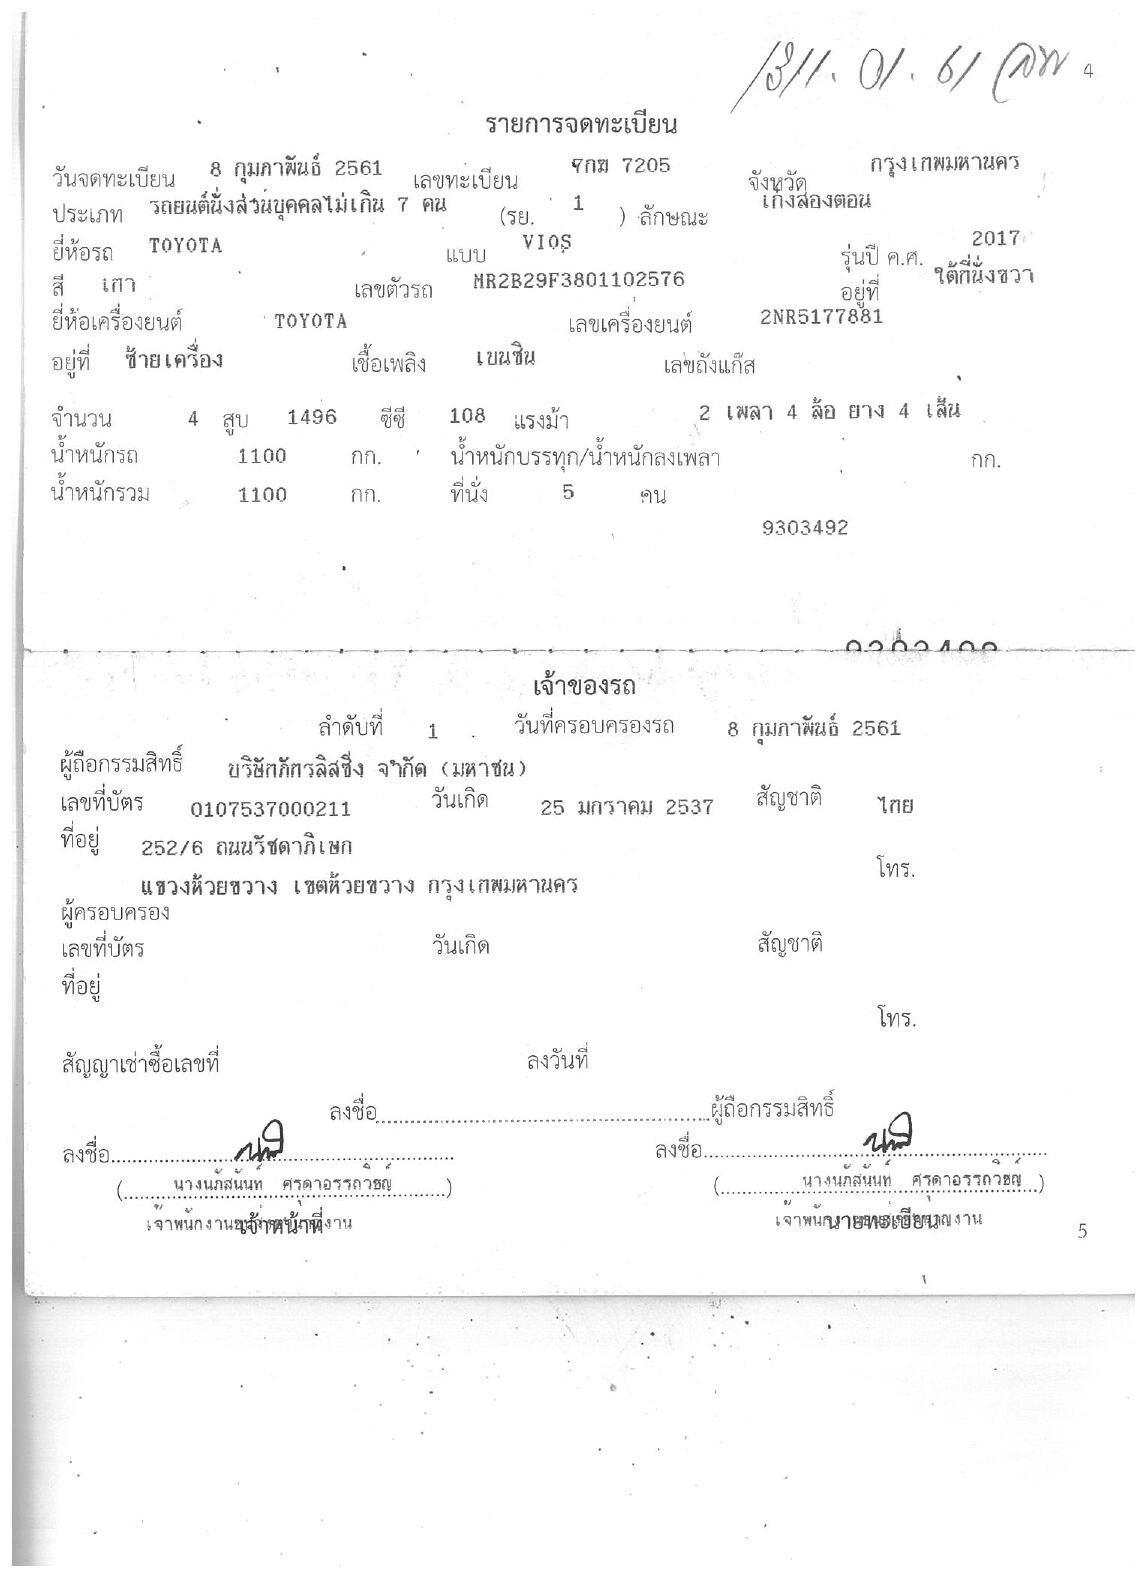 4
รายการจดทะเบียน
วันจดทะเบียน 8 กุมภาพันธ์ 2561 เลขทะเบียน 7205 จังหวัด กรุงเทพมหานคร
ประเภท รถยนต์นั่งส่วนบุคคลไม่เกิน 7 คน (รย. 1 ) ลักษณะ เก๋งสองตอน
ยี่ห้อรถ TOYOTA แบบ VIOS รุ่นปี ค.ศ. 2017
สี เทา เลขตัวรถ MR2B29F3801102576 อยู่ที่ ใต้ที่นั่งขวา
ยี่ห้อเครื่องยนต์ TOYOTA เลขเครื่องยนต์ 2NR5177881
อยู่ที่ ซ้ายเครื่อง เชื้อเพลิง เบนซิน เลขถังแก๊ส
จำนวน 4 สูบ 1496 ซีซี 108 แรงม้า 2 เพลา 4 ล้อ ยาง 4 เส้น
น้ำหนักรถ 1100 กก. น้ำหนักบรรทุก/น้ำหนักลงเพลา กก.
น้ำหนักรวม 1100 กก. ที่นั่ง 5 คน
9303492
9303492
เจ้าของรถ
ลำดับที่ 1 วันที่ครอบครองรถ 8 กุมภาพันธ์ 2561
ผู้ถือกรรมสิทธิ์ บริษัทภัทรลิสซิ่ง จำกัด (มหาชน)
เลขที่บัตร 0107537000211 วันเกิด 25 มกราคม 2537 สัญชาติ ไทย
ที่อยู่ 252/6 ถนนรัชดาภิเษก
แขวงห้วยขวาง เขตห้วยขวาง กรุงเทพมหานคร โทร.
ผู้ครอบครอง
เลขที่บัตร วันเกิด สัญชาติ
ที่อยู่
โทร.
สัญญาเช่าซื้อเลขที่ ลงวันที่
ลงชื่อ ผู้ถือกรรมสิทธิ์
ลงชื่อ ลงชื่อ
(นางนภัสนันท์ ศรุดาอรรถวิชญ์) (นางนภัสนันท์ ศรุดาอรรถวิชญ์)
เจ้าหน้าที่ นายทะเบียน
5